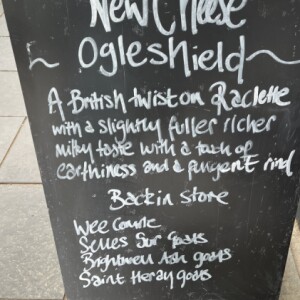 New Cheese
Ogleshield
A British twist on Raclette
with a slightly fuller richer
milky taste with a touch of
earthiness and a pungent rind
Back in store
Wee Comte
Sur Goats
Brightwell Ash goats
Saint goats